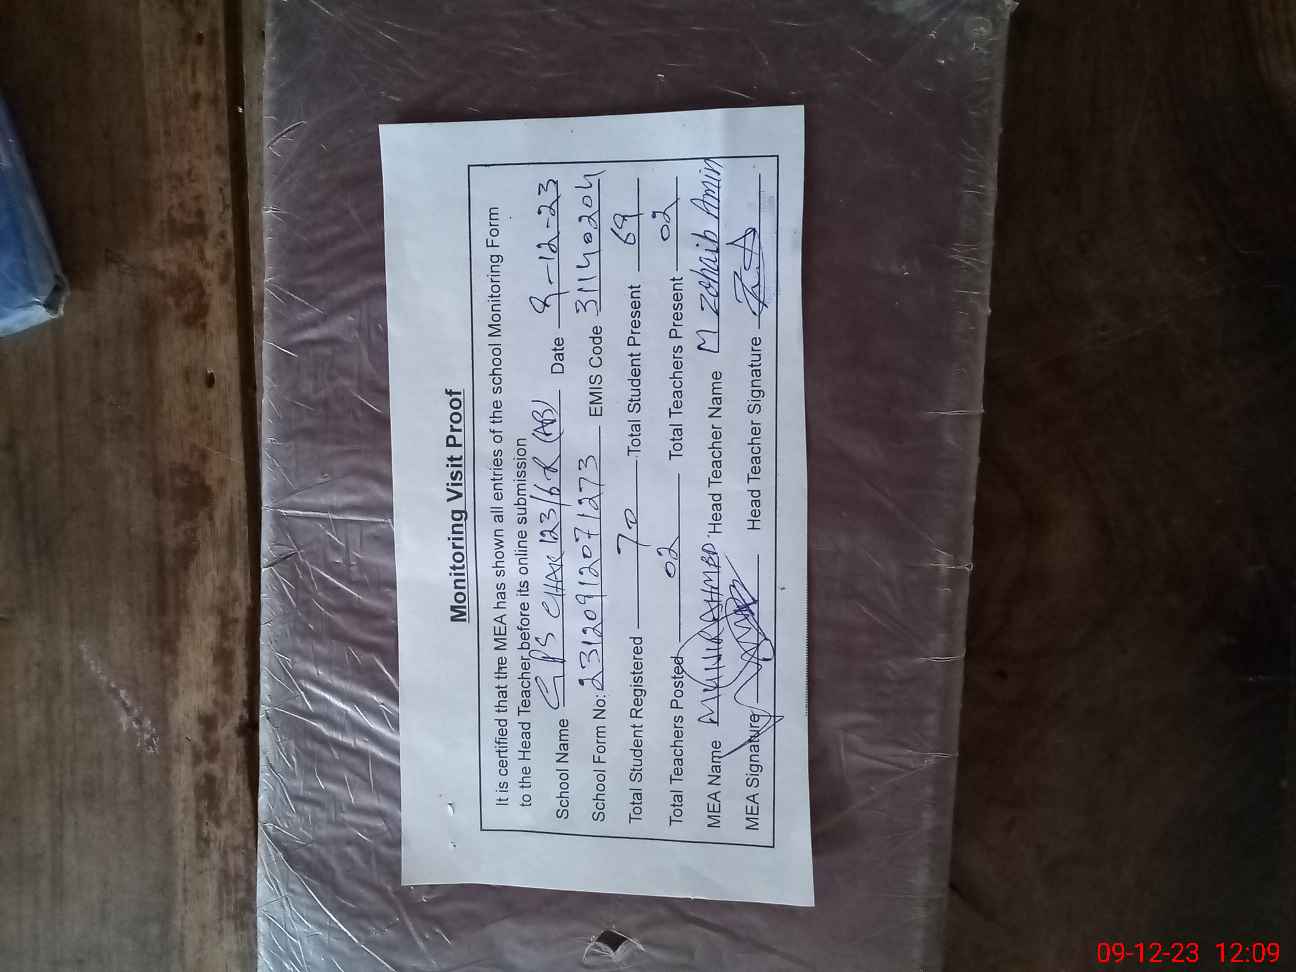 Monitoring Visit Proof
It is certified that the MEA has shown all entries of the school Monitoring Form
to the Head Teacher before its online submission
School Name GPS CHAK 123/6R (AB) Date 9-12-23
School Form No: 23120912071273 EMIS Code 31140204
Total Student Registered 70 Total Student Present 69
Total Teachers Posted 02 Total Teachers Present 02
MEA Name MUNIR AHMED Head Teacher Name M Zohaib Amin
MEA Signature Head Teacher Signature
09-12-23 12:09